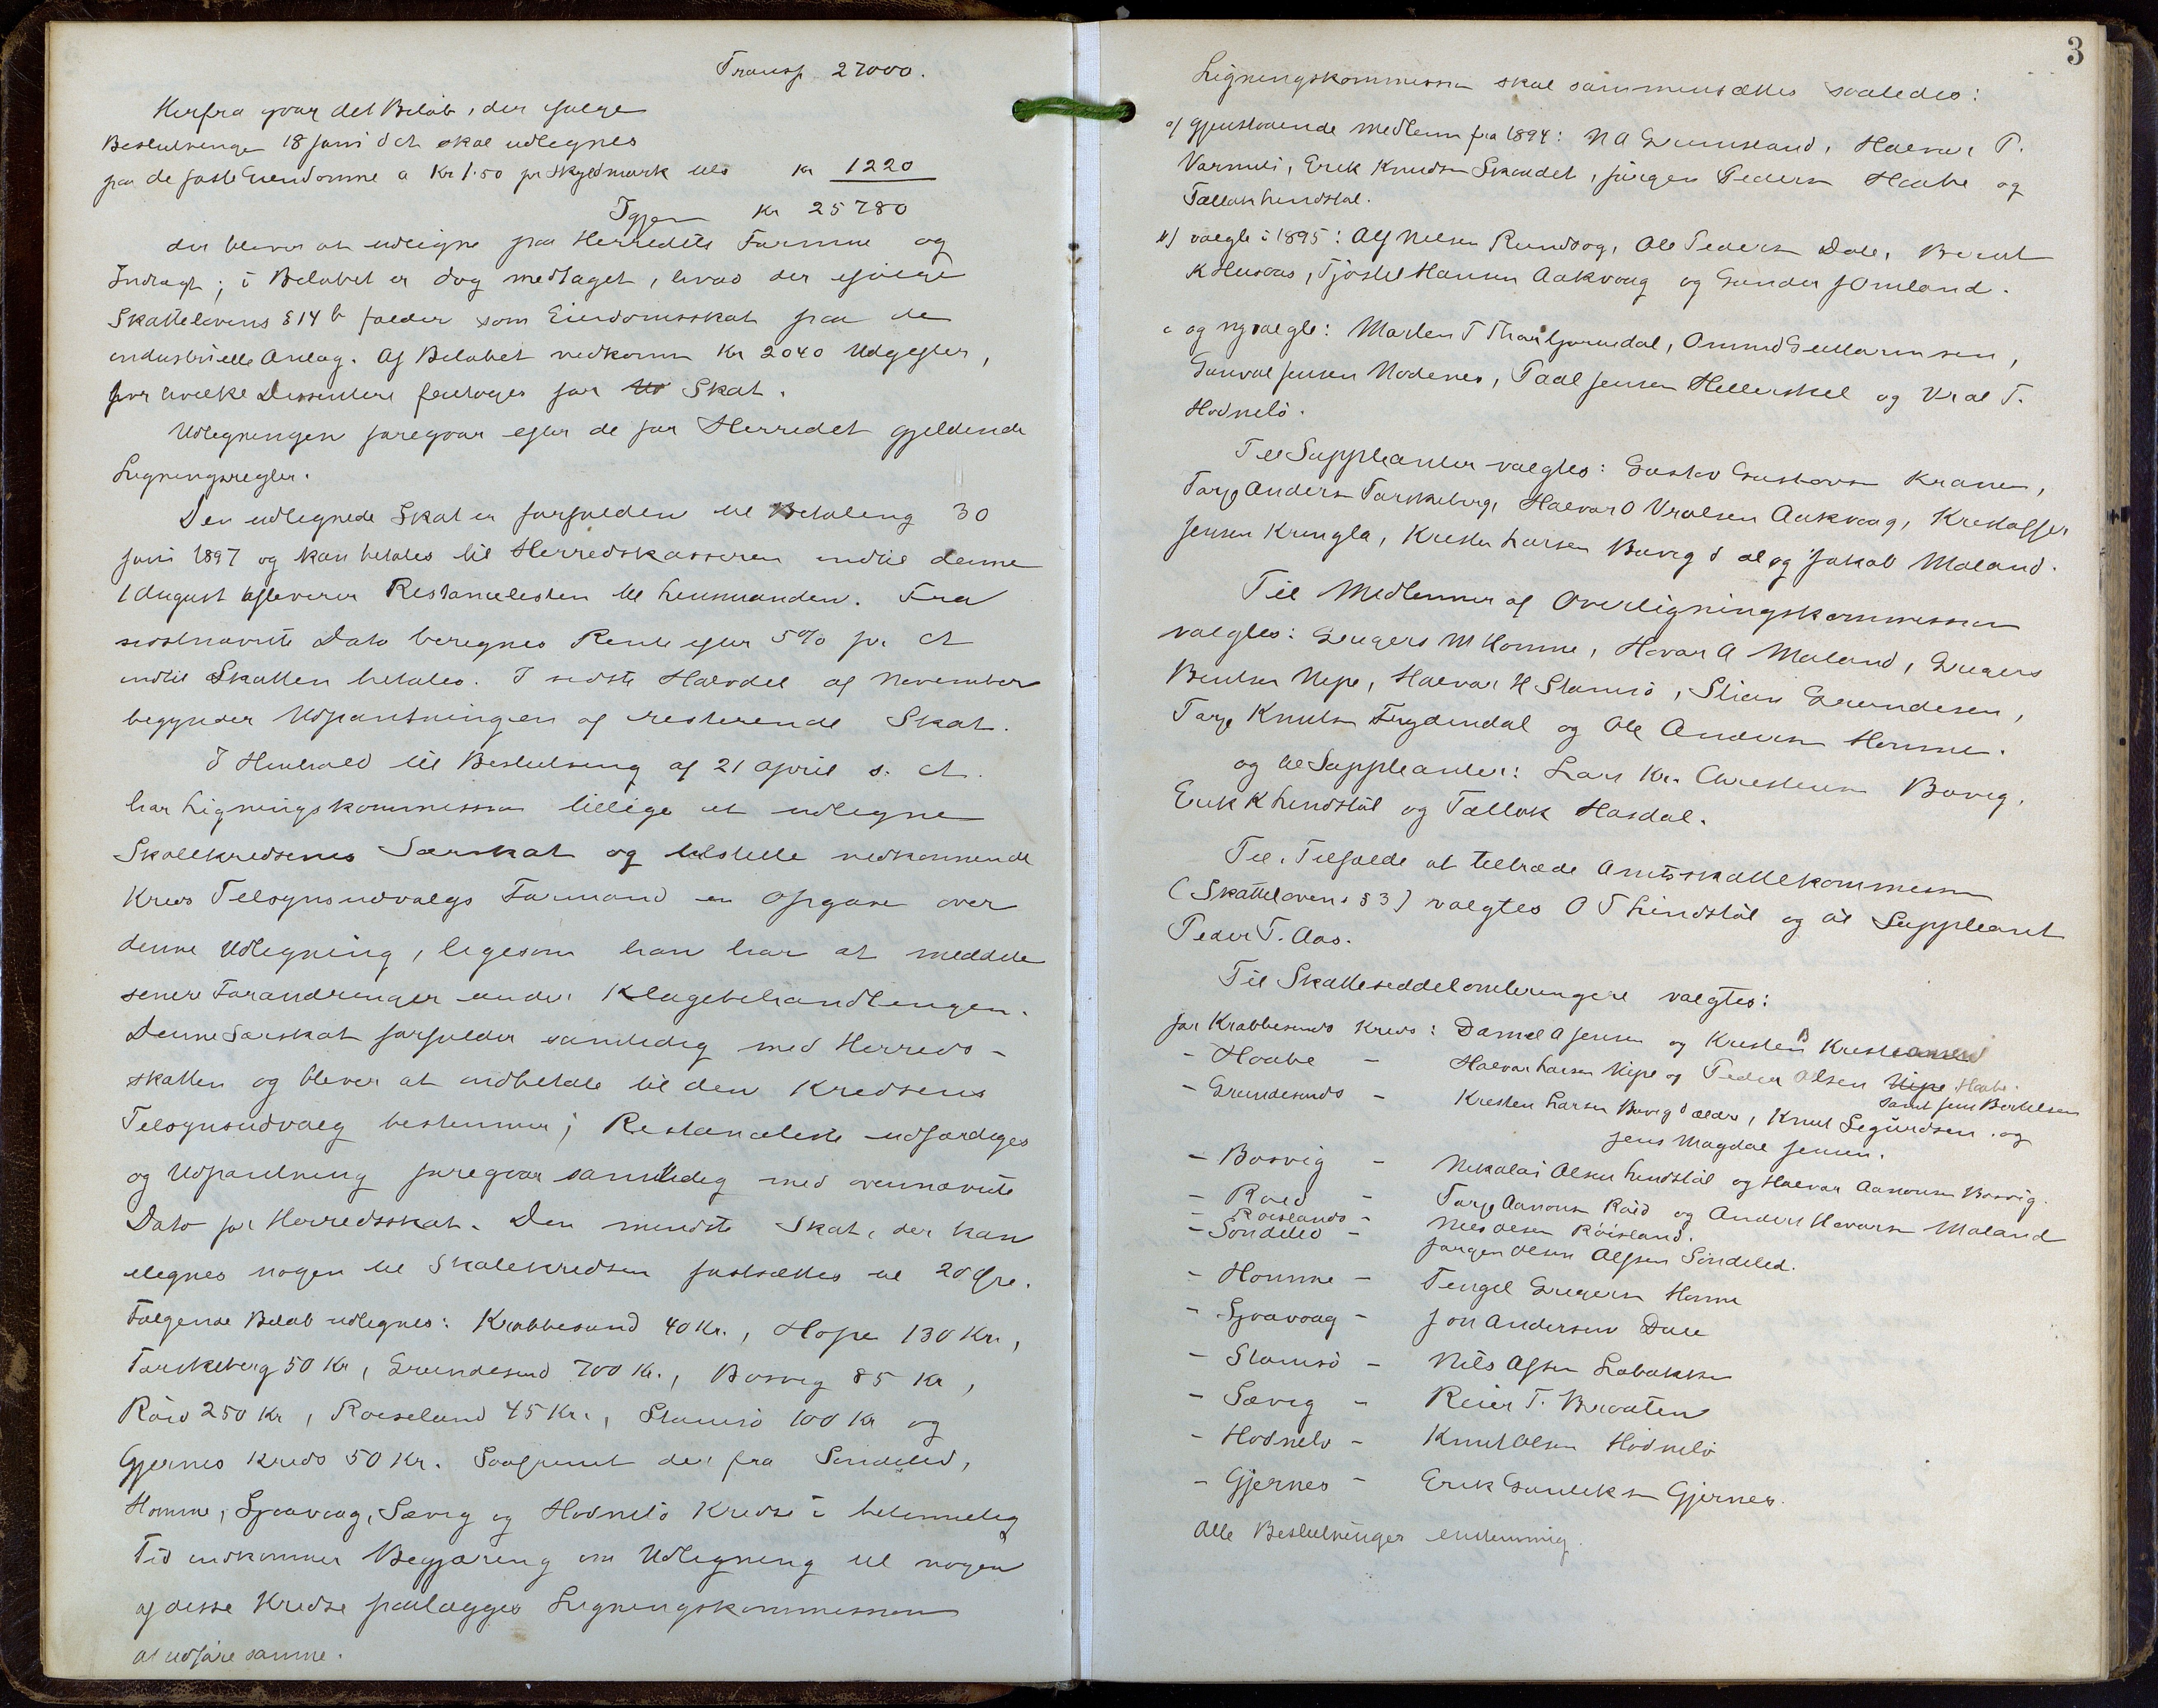 Transp 27000.
Herfra gaar det Beløb, der ifølge
Beslutninger 18 Juni d At skal udlegnes
paa de faste Eiendomme a Kr 1.50 pr Skyldmark tils Kr 1220
Igjen Kr 25780
der bliver at udligne paa Herredets Formue og
Indtægt; i Beløbet er dog medtaget, hvad der ifølge
Skattelovens § 14 b falder som Eiendomsskat paa de
industrielle Anlæg. Af Beløbet vedkomm Kr 2040 Udgifter,
for hvilke Dissentere fritages for Skat.
Udlegningen foregaar efter de for Herredet gjeldende
Ligningsregler.
Den udlegnede Skat er forfalden til Betaling 30
Juni 1897 og kan betales til Herredskasseren indtil denne
1 August afleverer Restancelisten til Lensmanden. Fra
sidstnævnte Dato beregnes Rente efter 5% pr At
indtil Skatten betales. I sidste Halvdel af November
begynder Udpantningen af resterende Skat.
I Henhold til Beslutning af 21 April s. At.
har Ligningskommission tillige at udlegne
Skolekredsenes Særskat og tilstille vedkommende
Kreds Tilsynsudvalgs Formand en Opgave over
denne Udlegning, ligesom han har at meddele
senere Forandringer under Klagebehandlingen.
Denne Særskat forfalder samtidig med Herreds-
skatten og bliver at indbetale til den Kredsens
Tilsynsudvalg bestemmer; Restanceliste udfærdiges
og Udpantning foregaar samtidig med ovennævnte
Dato for Herredsskat. Den mindste Skat, der kan
ilegnes nogen til Skolekredsen fastsættes til 20 Øre.
Følgende Beløb udlegnes: Krabbesund 40 Kr., Hope 130 Kr,
Torskeberg 50 Kr, Grundesund 700 Kr., Bosvig 85 Kr,
Røid 250 Kr, Roiseland 45 Kr., Stamsø 100 Kr og
Gjernes Kreds 50 Kr. Saafremt der fra Søndeled,
Homme, Sjvavaag, Sævig og Hødnelø Kredse i betimelig
Tid indkommer Begjæring om Udlegning til nogen
af disse Kredse paalægges Ligningskommission
at udføre samme.
3
Ligningskommission skal sammensættes saaledes:
a) gjenstaaende Medlemm fra 1894: N A Grumstand, Halvor P.
Varmuli, Erik Knudsen Skaudet, Jørgen Pedersn Haabe og
Tallak Lindstøl.
b) valgte i 1895: Alf Nelsen Rundvog, Ole Pedersn Dale, Berent
K Husaas, Tjøstel Hansen Aakvaag og Gunder J Omland.
c og nyvalgte: Marten T Thorbjørnsdal, Omund Guttormsen,
Gunval Jensen Nodenes, Paal Jensen Hellerskel og Vral T.
Hødnelø.
Til Suppleanter valgtes: Gustav Gustavsen Kranen,
Tarje Andersn Torskeberg, Halvor O Vralsen Aakvaag, Kristoffer
Jensen Krungla, Kristen Larsen Bovig d æl og Jakob Møland.
Til Medlemmer af Overligningskommission
valgtes: Gregers M Homme, Havar A Møland, Gregers
Bentsen Nipe, Halvar H Stamsø, Stian Grundesen,
Tarje Knutsen Frydendal og Ole Andersn Homme.
og til Suppleanter: Lars Kr. Christensen Bovig,
Erik K Lindstøl og Tallak Hasdal.
Til i Tilfælde at tiltræde Amtsskattekommission
(Skattelovens § 3) valgtes O T Lindstøl og til Suppleant
Peder T. Aas.
Til Skatteseddelombringere valgtes:
for Krabbesunds Kreds: Daniel A Jensen og Kristen B Kristiansen
- Haabe - Halvor Larsen Nipe og Peder Olsen Nipe Haabe.
samt Jens Bertelsen
- Grundesunds - Kristen Larsen Bovig d ældre, Knut Segurdsen og
Jens Magdal Jensen.
- Bosvig - Nikolai Olsen Lindstøl og Halvar Aanonsen Bosvig.
- Roed - Tarje Aanonsn Røid og Anders Havarsn Møland
- Roislands - Nils Olsen Röisland.
- Søndeled - Jørgen Olsen Alfsen Søndeled.
- Homme - Tengel Gregersn Homme
- Sjvavaag - Jon Andersen Dale
- Stamsø - Nils Alfsen Løbakken
- Sævig - Reier T. Braaten
- Hødnelø - Knut Olsen Hødnelø
- Gjernes - Erik Gunleksn Gjernes.
Alle Beslutninger enstemmig.